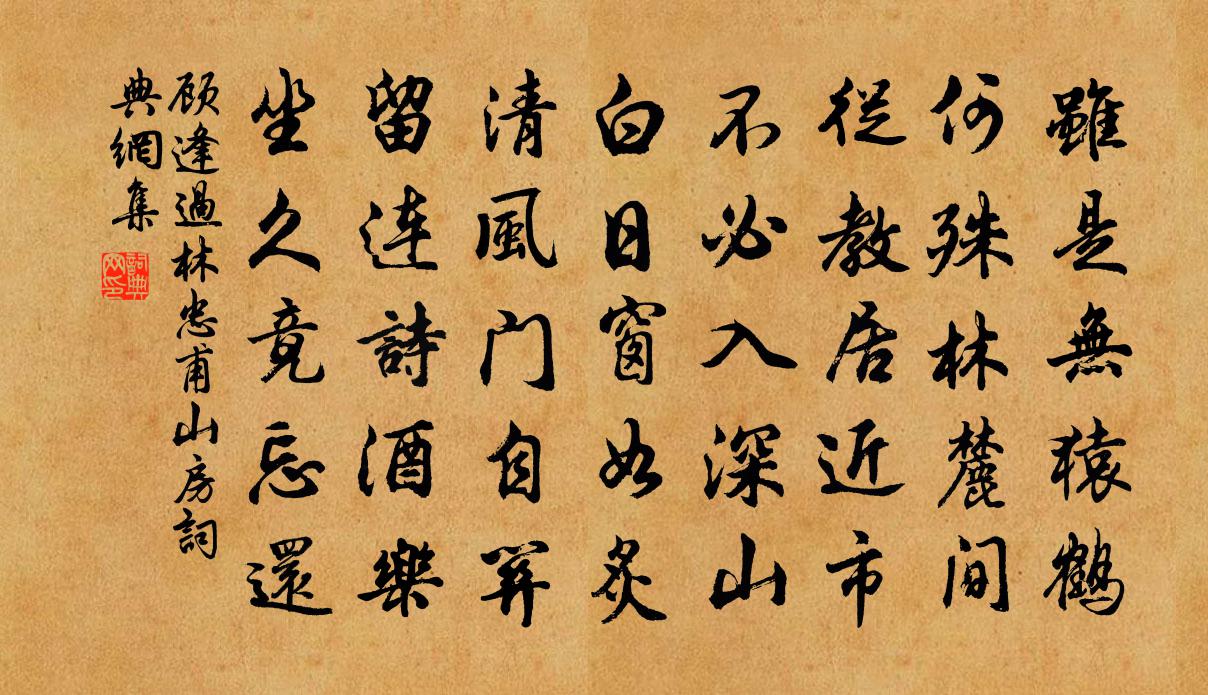 雖是無猿鶴
何殊林麓间
從教居近市
不必入深山
白日窗如炙
清風门自关
留連詩酒樂
坐久竟忘還
顾逢過林忠甫山房詞
典網集
詞典
网印